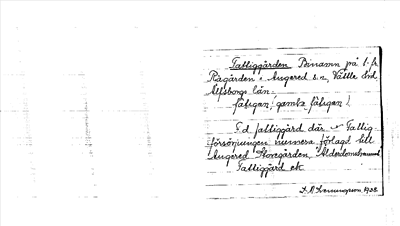 Fattiggården Binamn på l.f.
Rågården i Angered s.n, Vättle hd
Älfsborgs län.
fåtigan; gamla fåtigan).
F.d fattiggård där Fattig-
försörjningen numera förlagd till
Angered Storegården, Ålderdomshemmet
Fattiggård etc
1938